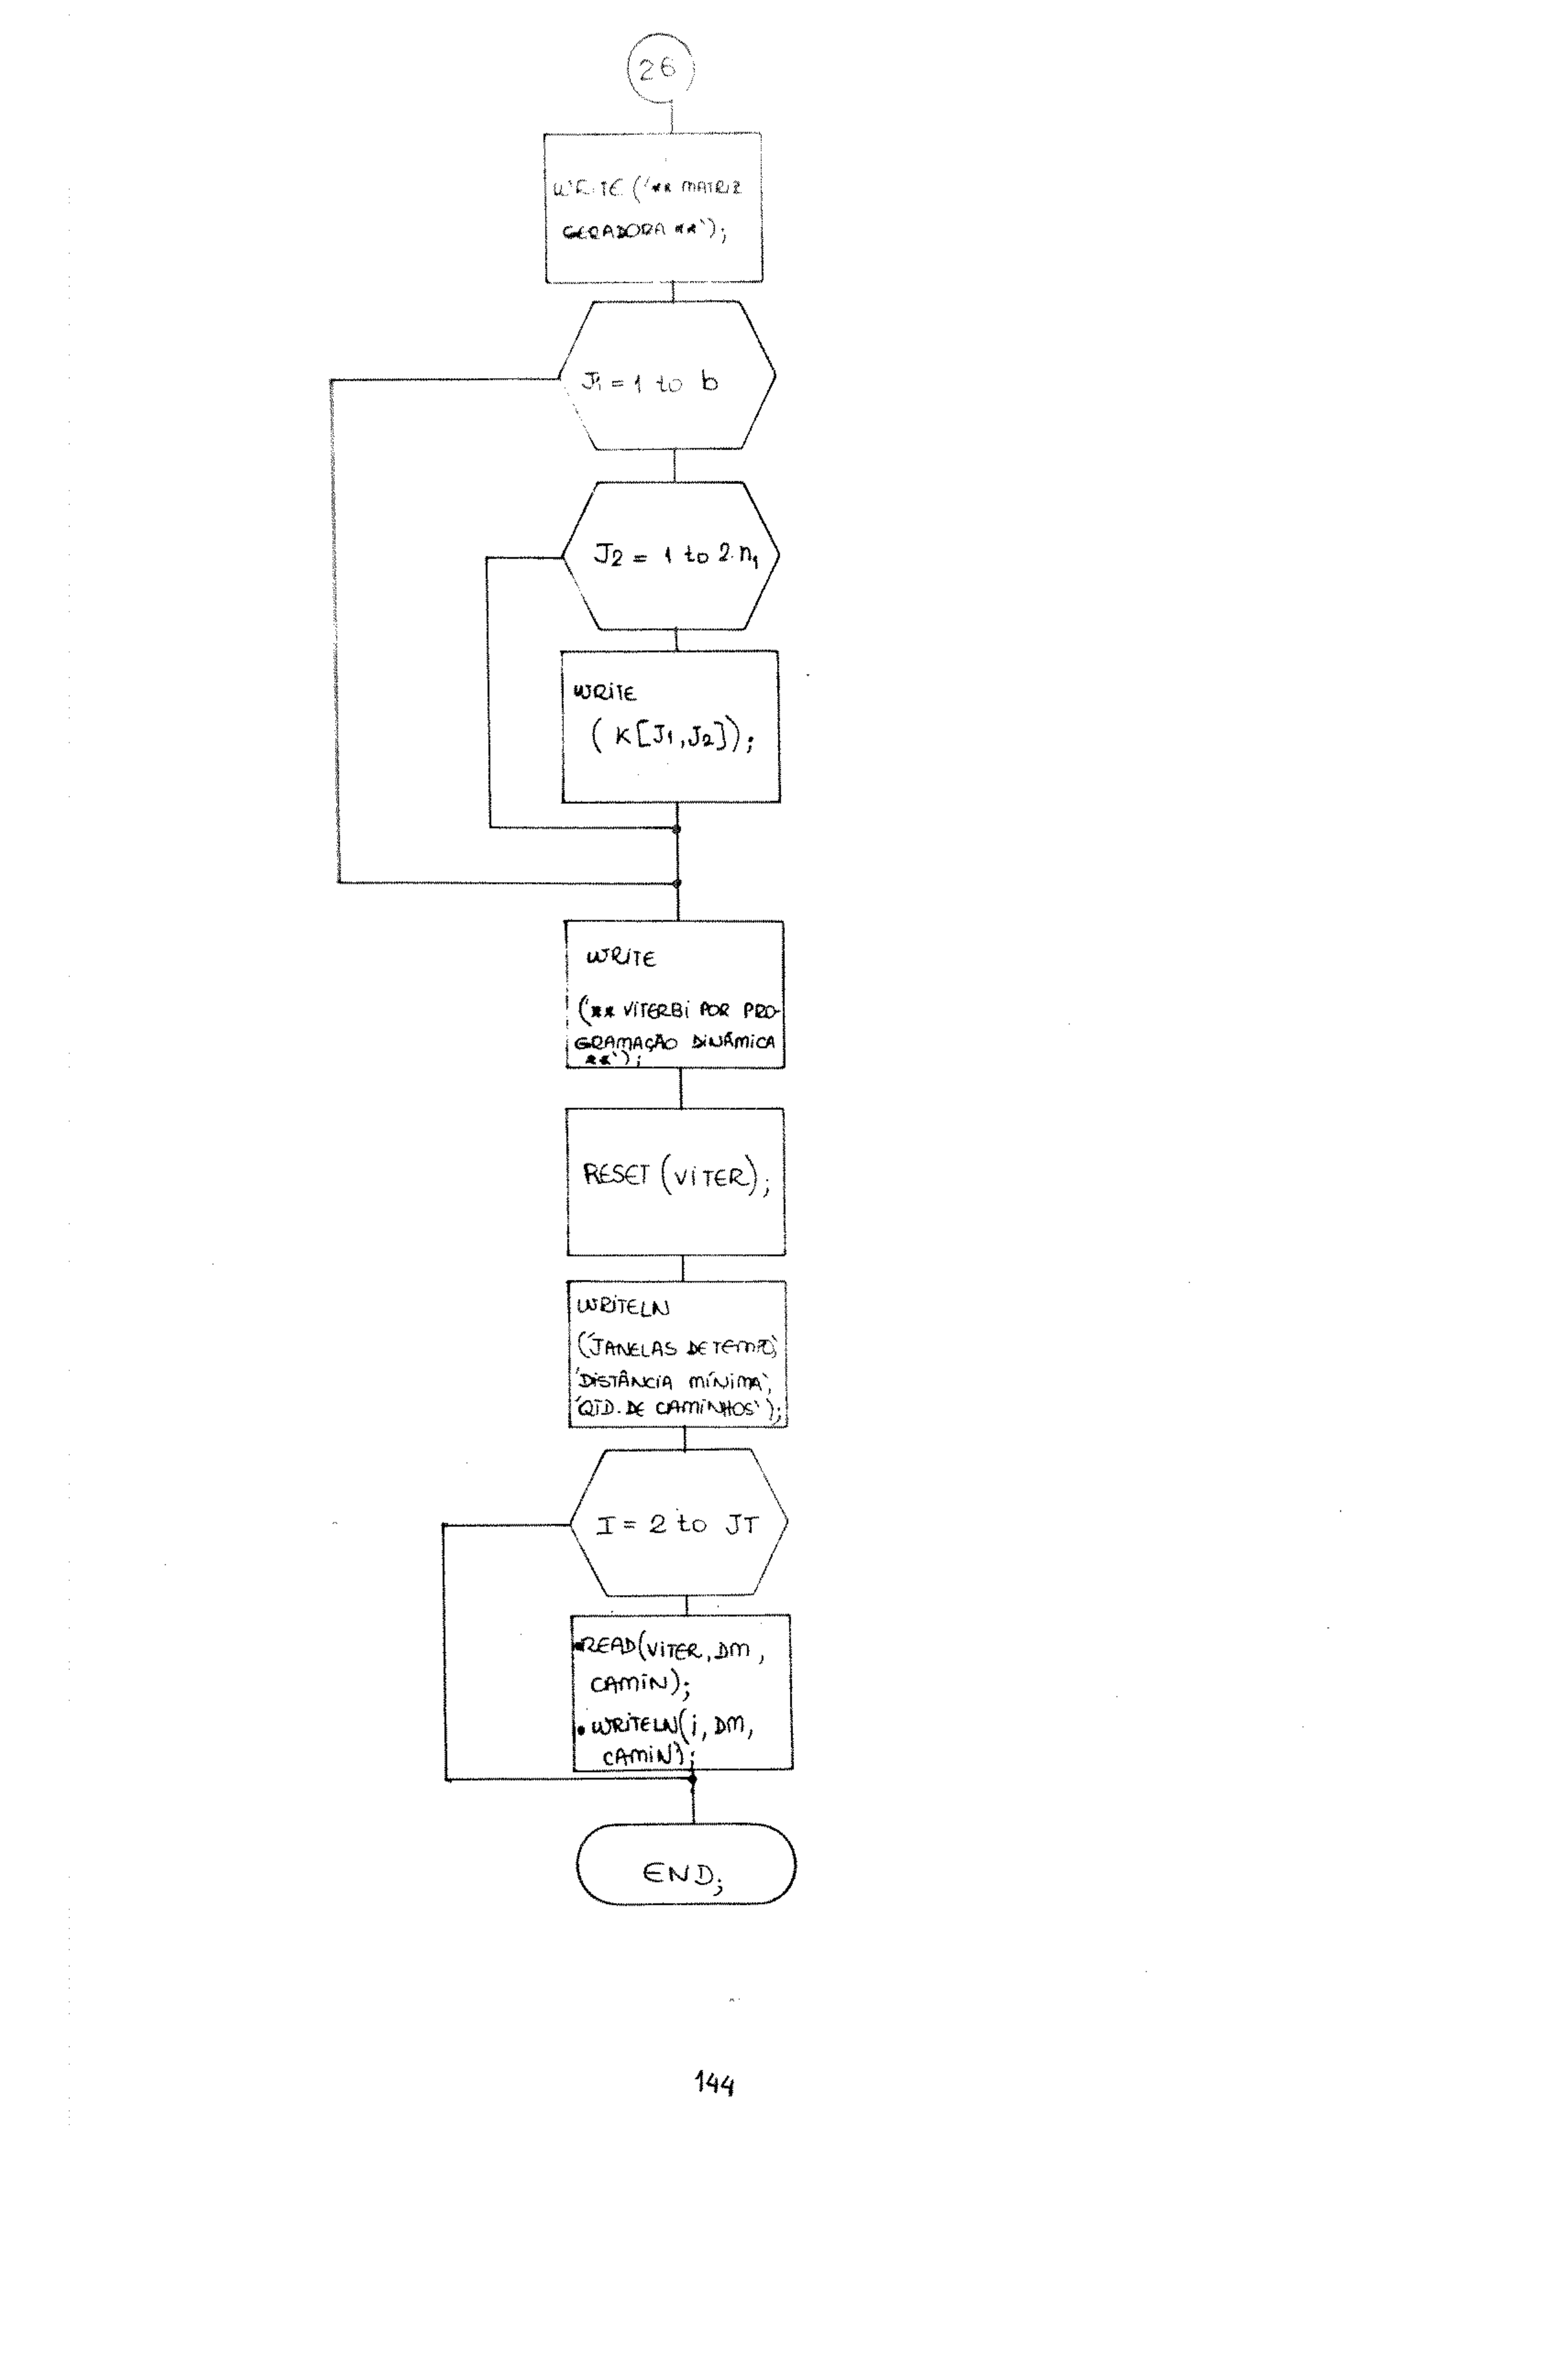 26
WRITE ('** MATRIZ
GERADORA **');
J1 = 1 to b
J2 = 1 to 2.n1
WRITE
(K[J1,J2]);
WRITE
('** VITERBI POR PRO-
GRAMAÇÃO DINÂMICA
**');
RESET (VITER);
WRITELN
('JANELAS DE TEMPO',
'DISTÂNCIA MÍNIMA',
'QTD. DE CAMINHOS');
I = 2 to JT
•READ(VITER, DM,
CAMIN);
• WRITELN(i, DM,
CAMIN);
END;
144